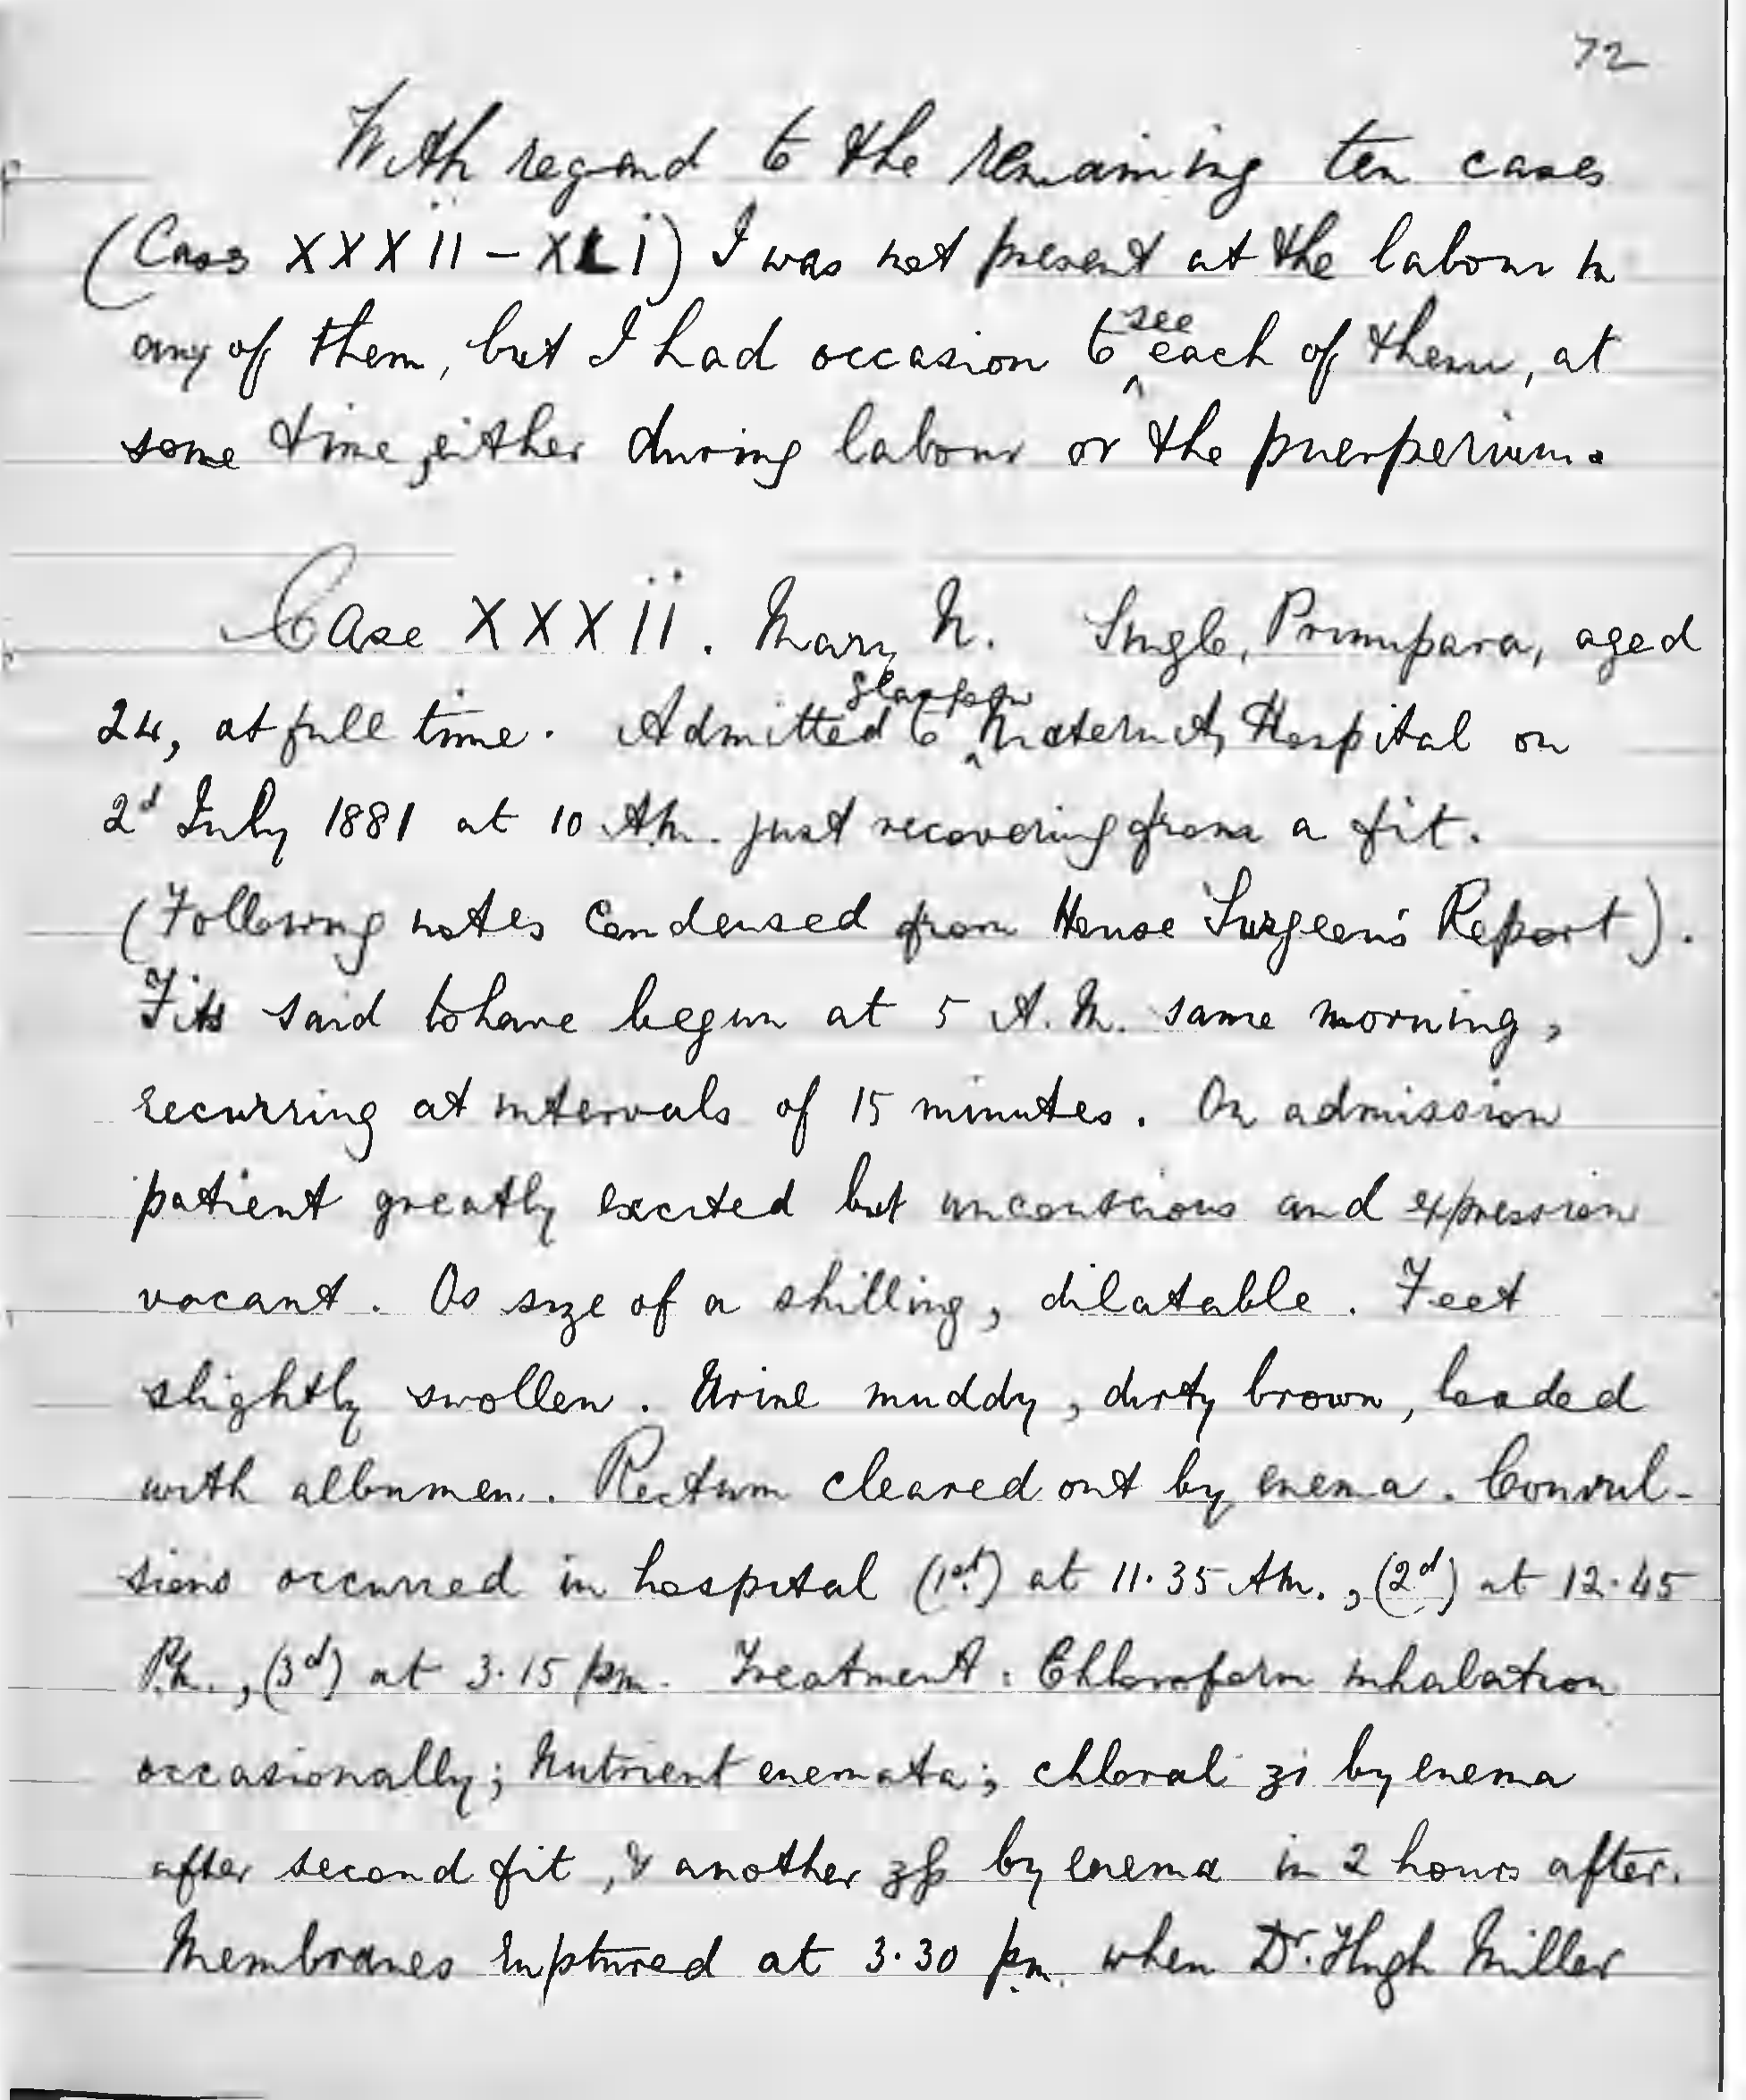 72
With regard to the remaining ten cases
(Cases XXXii - XLi) I was not present at the labour in
any of them, but I had occasion to see each of them, at
some time, either during labour or the puerperium.
Case XXXii. Mary N. Single, Primipara, aged
24, at full time. Admitted to Glasgow Maternity Hospital on
2d July 1881 at 10 AM. just recovering from a fit.
(Following notes condensed from House Surgeon's Report).
Fits said to have begun at 5 A.M. same morning,
recurring at intervals of 15 minutes. On admission
patient greatly excited but unconscious and expression
vacant. Os size of a shilling, dilatable. Feet
slightly swollen. Urine muddy, dirty brown, loaded
with albumen. Rectum cleared out by enema. Convul-
sions occurred in hospital (1st) at 11.35 AM., (2d) at 12.45
P.M., (3d) at 3.15 pm. Treatment: Chloroform inhalation
occasionally; Nutrient enemata; chloral ʒi by enema
after second fit, & another ʒß by enema in 2 hours after.
Membranes ruptured at 3.30 p.m. when Dr. Hugh Miller